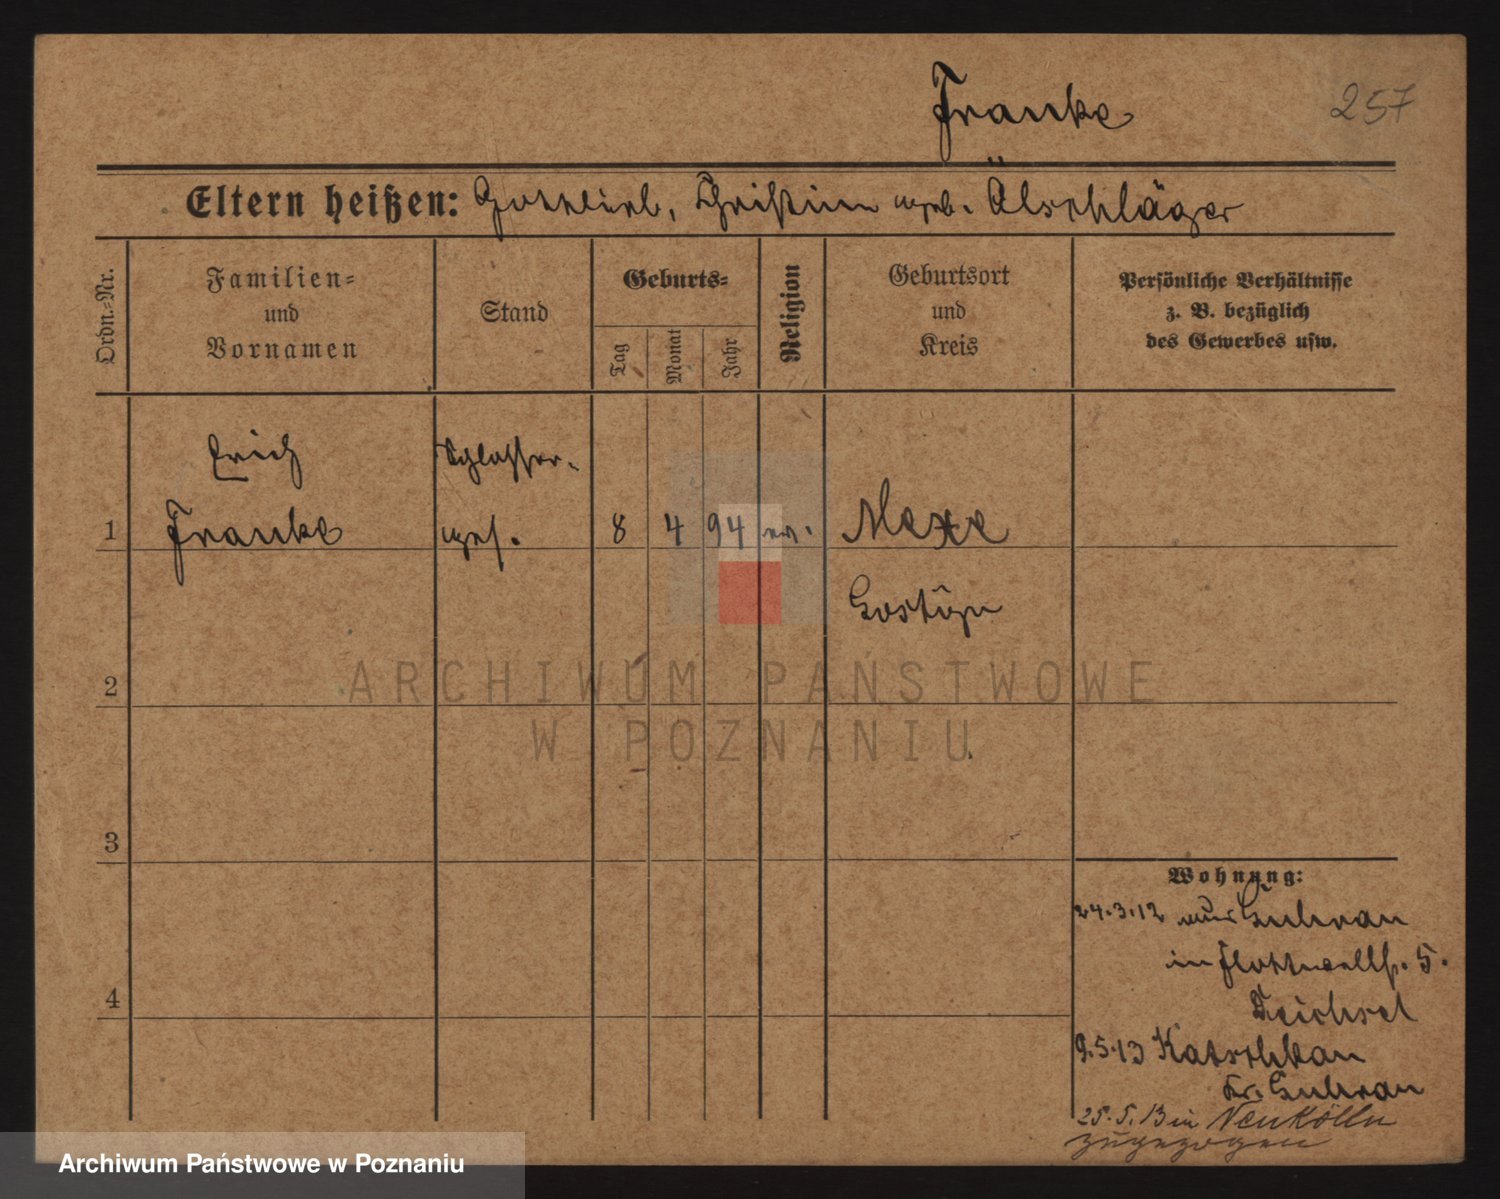 Franke
257
Eltern heißen: Gottlieb, Christine geb. Älschläger
Ordn.-Nr.
Familien-
und
Vornamen
Stand
Geburts-
Tag
Monat
Jahr
Religion
Geburtsort
und
Kreis
Persönliche Verhältnisse
z. B. bezüglich
des Gewerbes usw.
Erich
Schlosser-
1 Franke ges. 8 4 94 ev. Alexe
Gostyn
2
3
4
Wohnung:
24.3.12 aus Guhrau
in Flottwellst. 5.
Teichsel
9.5.13 Katschkau
Kr. Guhrau
25.5.13 in Neukölln
zugezogen
ARCHIWUM PAŃSTWOWE
W POZNANIU
Archiwum Państwowe w Poznaniu